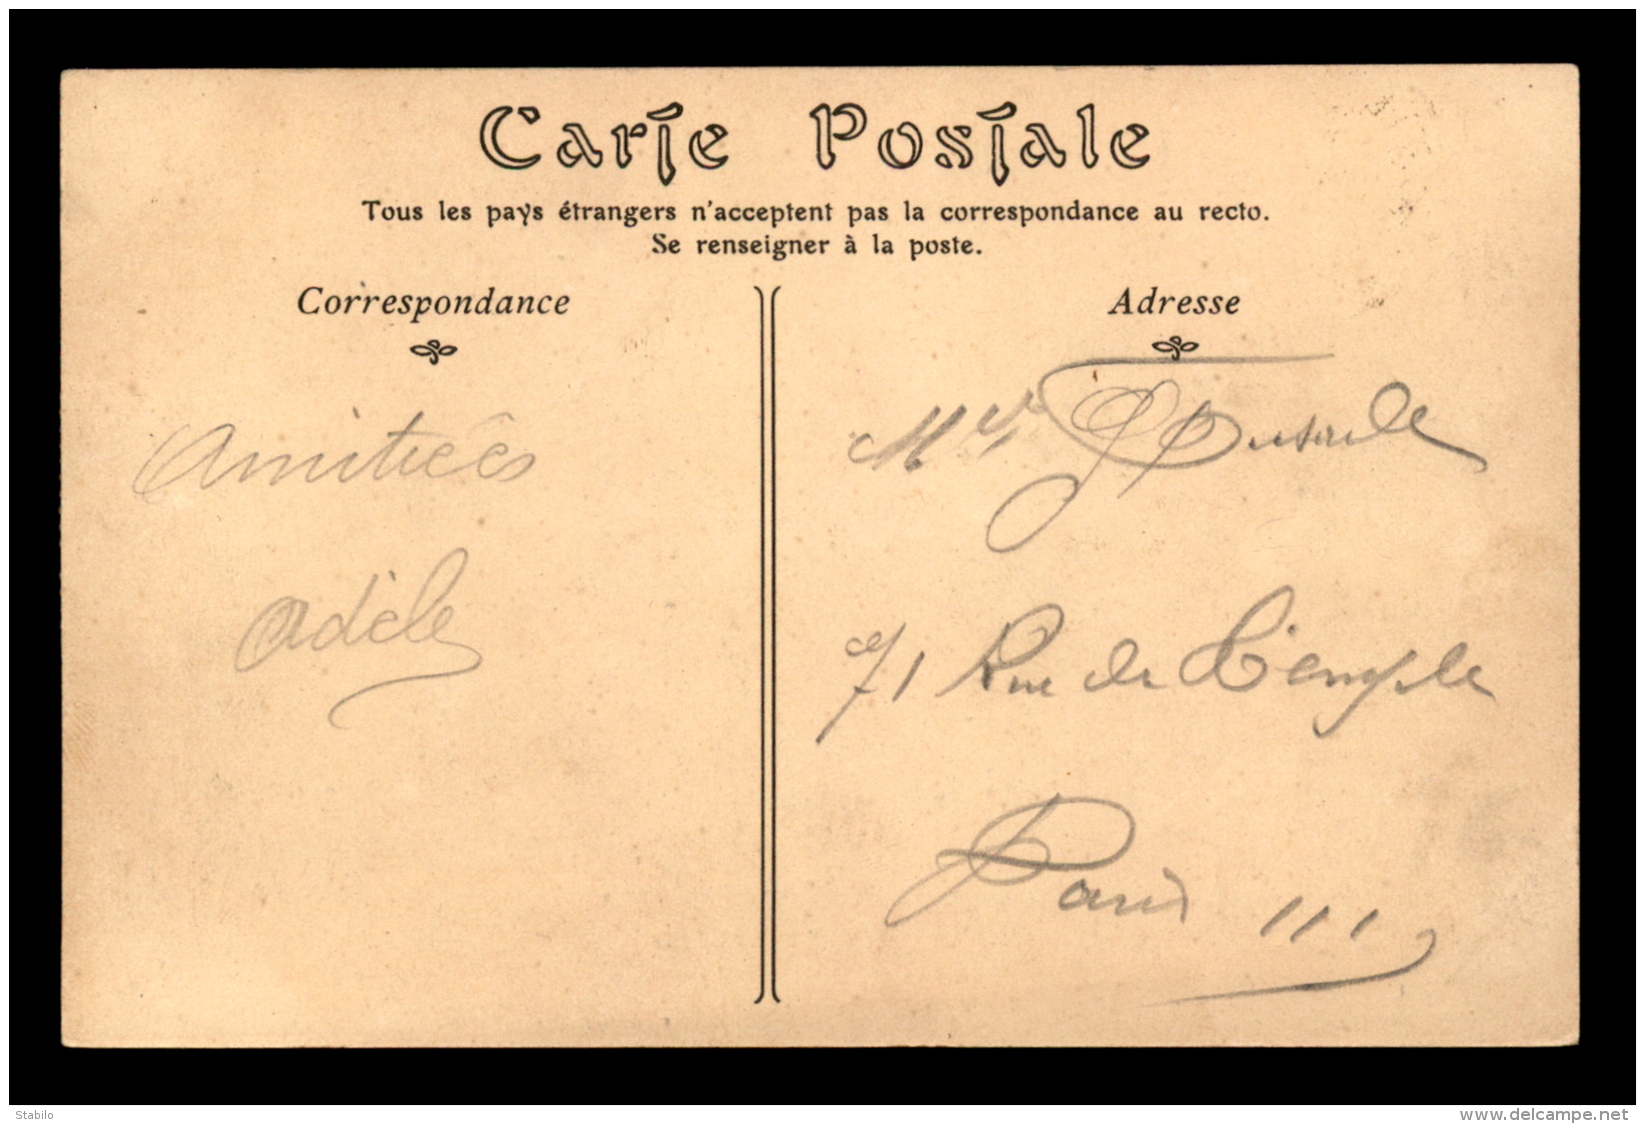 Carte Postale
Tous les pays étrangers n'acceptent pas la correspondance au recto.
Se renseigner à la poste.
Correspondance
Amitiées
Adèle
Adresse
Mlle J
71 Rue de Temple
Paris III
Stabilo
www.delcampe.net